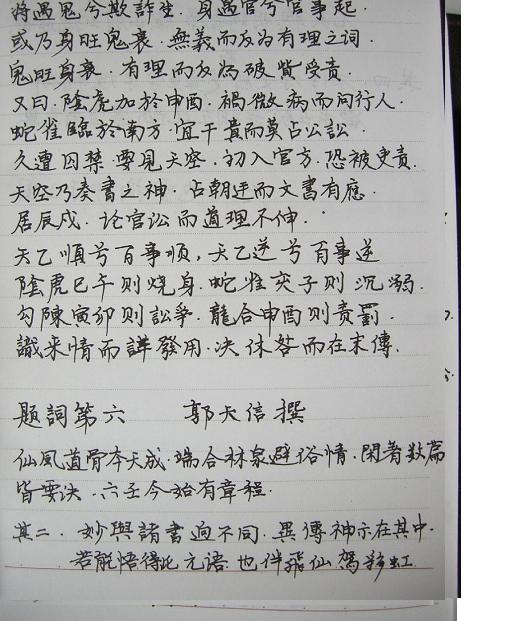 将遇鬼兮欺诈生．身遇官兮官事起．
或乃身旺鬼衰．無義而反为有理之词．
鬼旺身衰．有理而反為破貲受责．
又曰．陰虎加於申酉．禍微病而问行人．
蛇雀臨於南方．宜干貴而莫占公訟．
久遭囚禁．要見天空．初入官方．恐被吏责．
天空乃奏書之神．占朝廷而文書有應．
居辰戌．论官讼而道理不伸．
天乙順兮百事顺，天乙逆兮百事逆
陰虎巳午则烧身．蛇雀亥子则沉溺．
勾陳寅卯则訟爭．龍合申酉则责罰．
識来情而詳發用．决休咎而在末傳．
題詞第六 郭天信撰
仙風道骨本天成．瑞合林泉避俗情．閑著数篇
皆要决．六壬今始有章程．
其二．妙與諸書迥不同．異傳神示在其中．
若能悟得此元语．也伴飛仙駕彩虹．